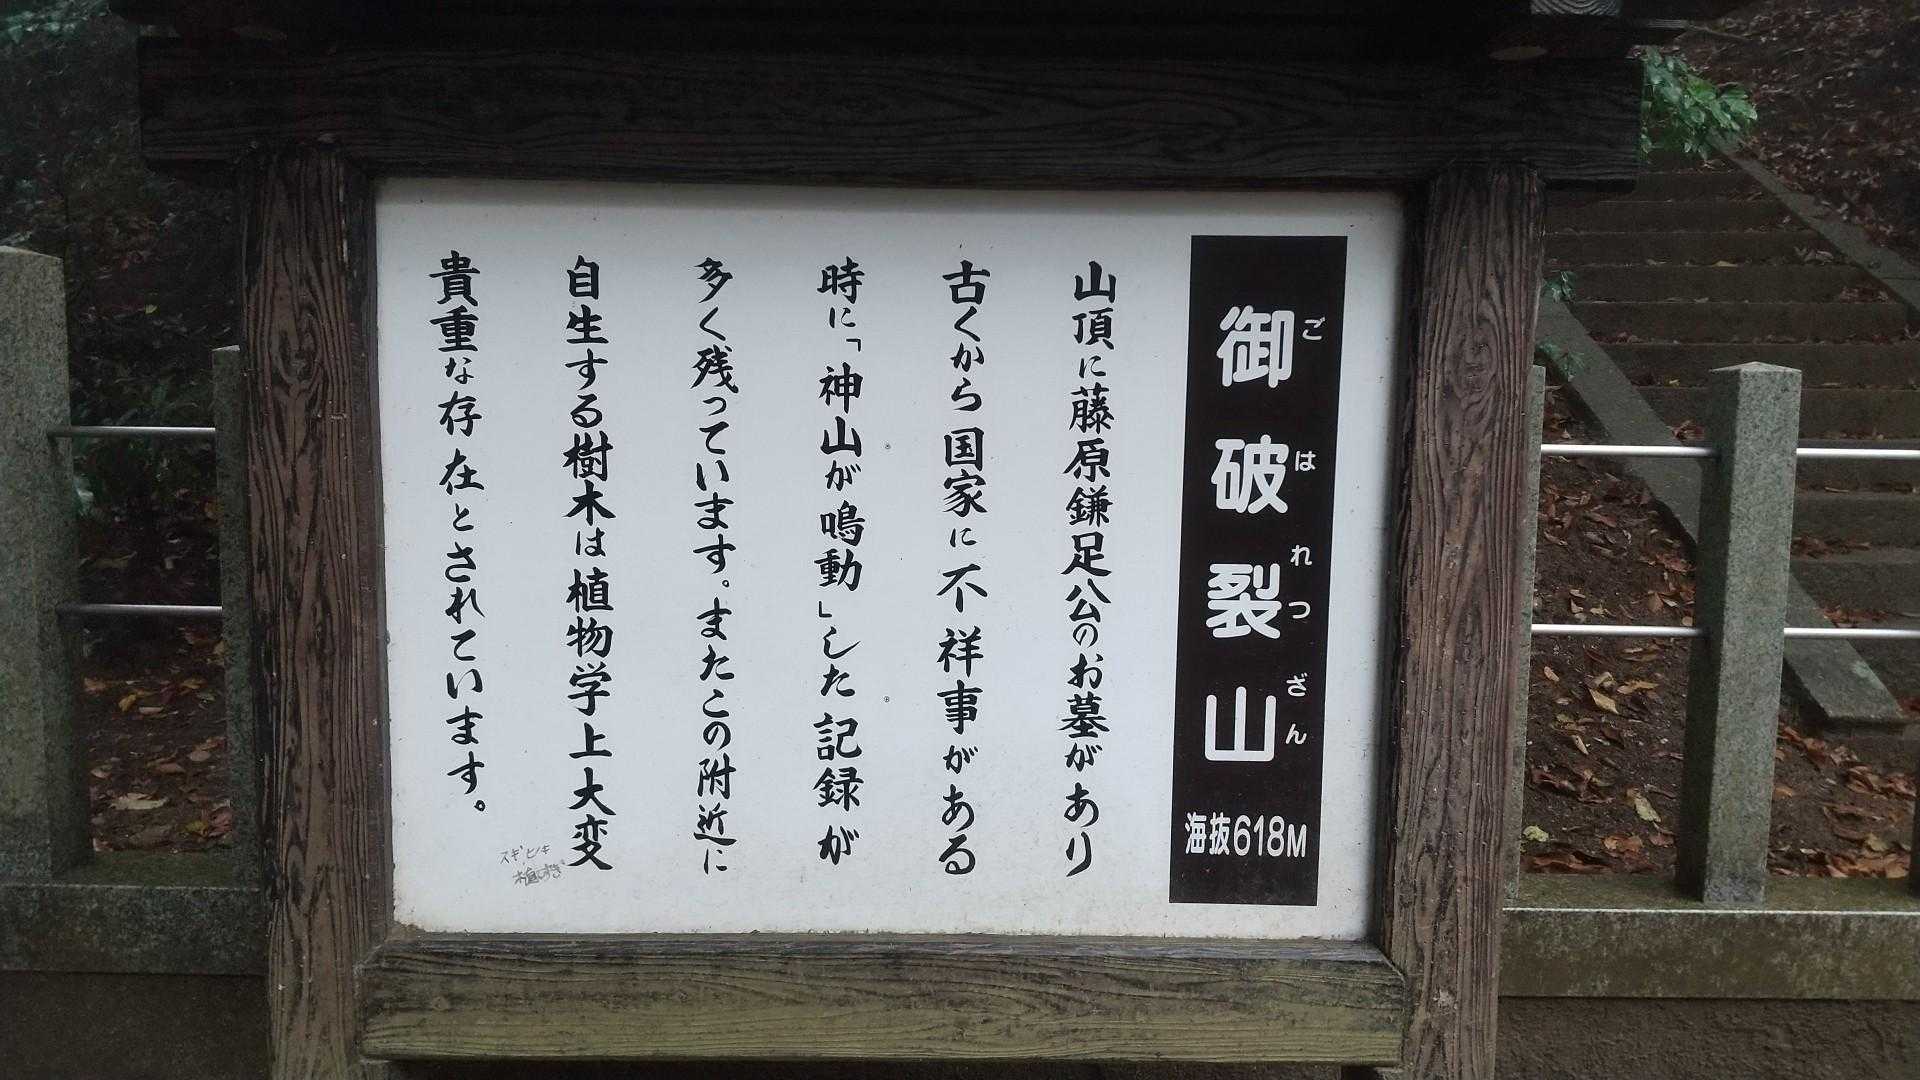 御破裂山
ごはれつざん
海抜618M
山頂に藤原鎌足公のお墓があり
古くから国家に不祥事がある
時に「神山が鳴動」した記録が
多く残っています。またこの附近に
自生する樹木は植物学上大変
貴重な存在とされています。
スギ,ヒノキ